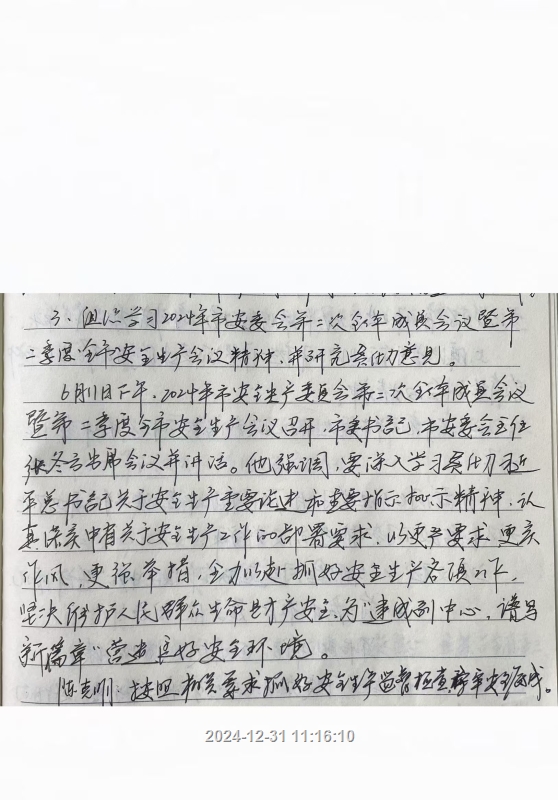 三、组织学习2024年市安委会第二次全体成员会议暨第
二季度全市安全生产会议精神，并研究贯彻意见。
6月11日下午，2024年市安全生产委员会第二次全体成员会议
暨第二季度全市安全生产会议召开，市委书记、市安委会主任
出席会议并讲话。他强调，要深入学习贯彻习近
平总书记关于安全生产重要论述和重要指示批示精神，认
真落实中有关于安全生产工作的部署要求，以更严要求、更实
作风、更强举措，全力以赴抓好安全生产各项工作，
坚决维护人民群众生命财产安全，为"建成副中心、谱写
新篇章"营造良好安全环境。
陈克刚：按照相关要求抓好安全生产监督检查
2024-12-31 11:16:10